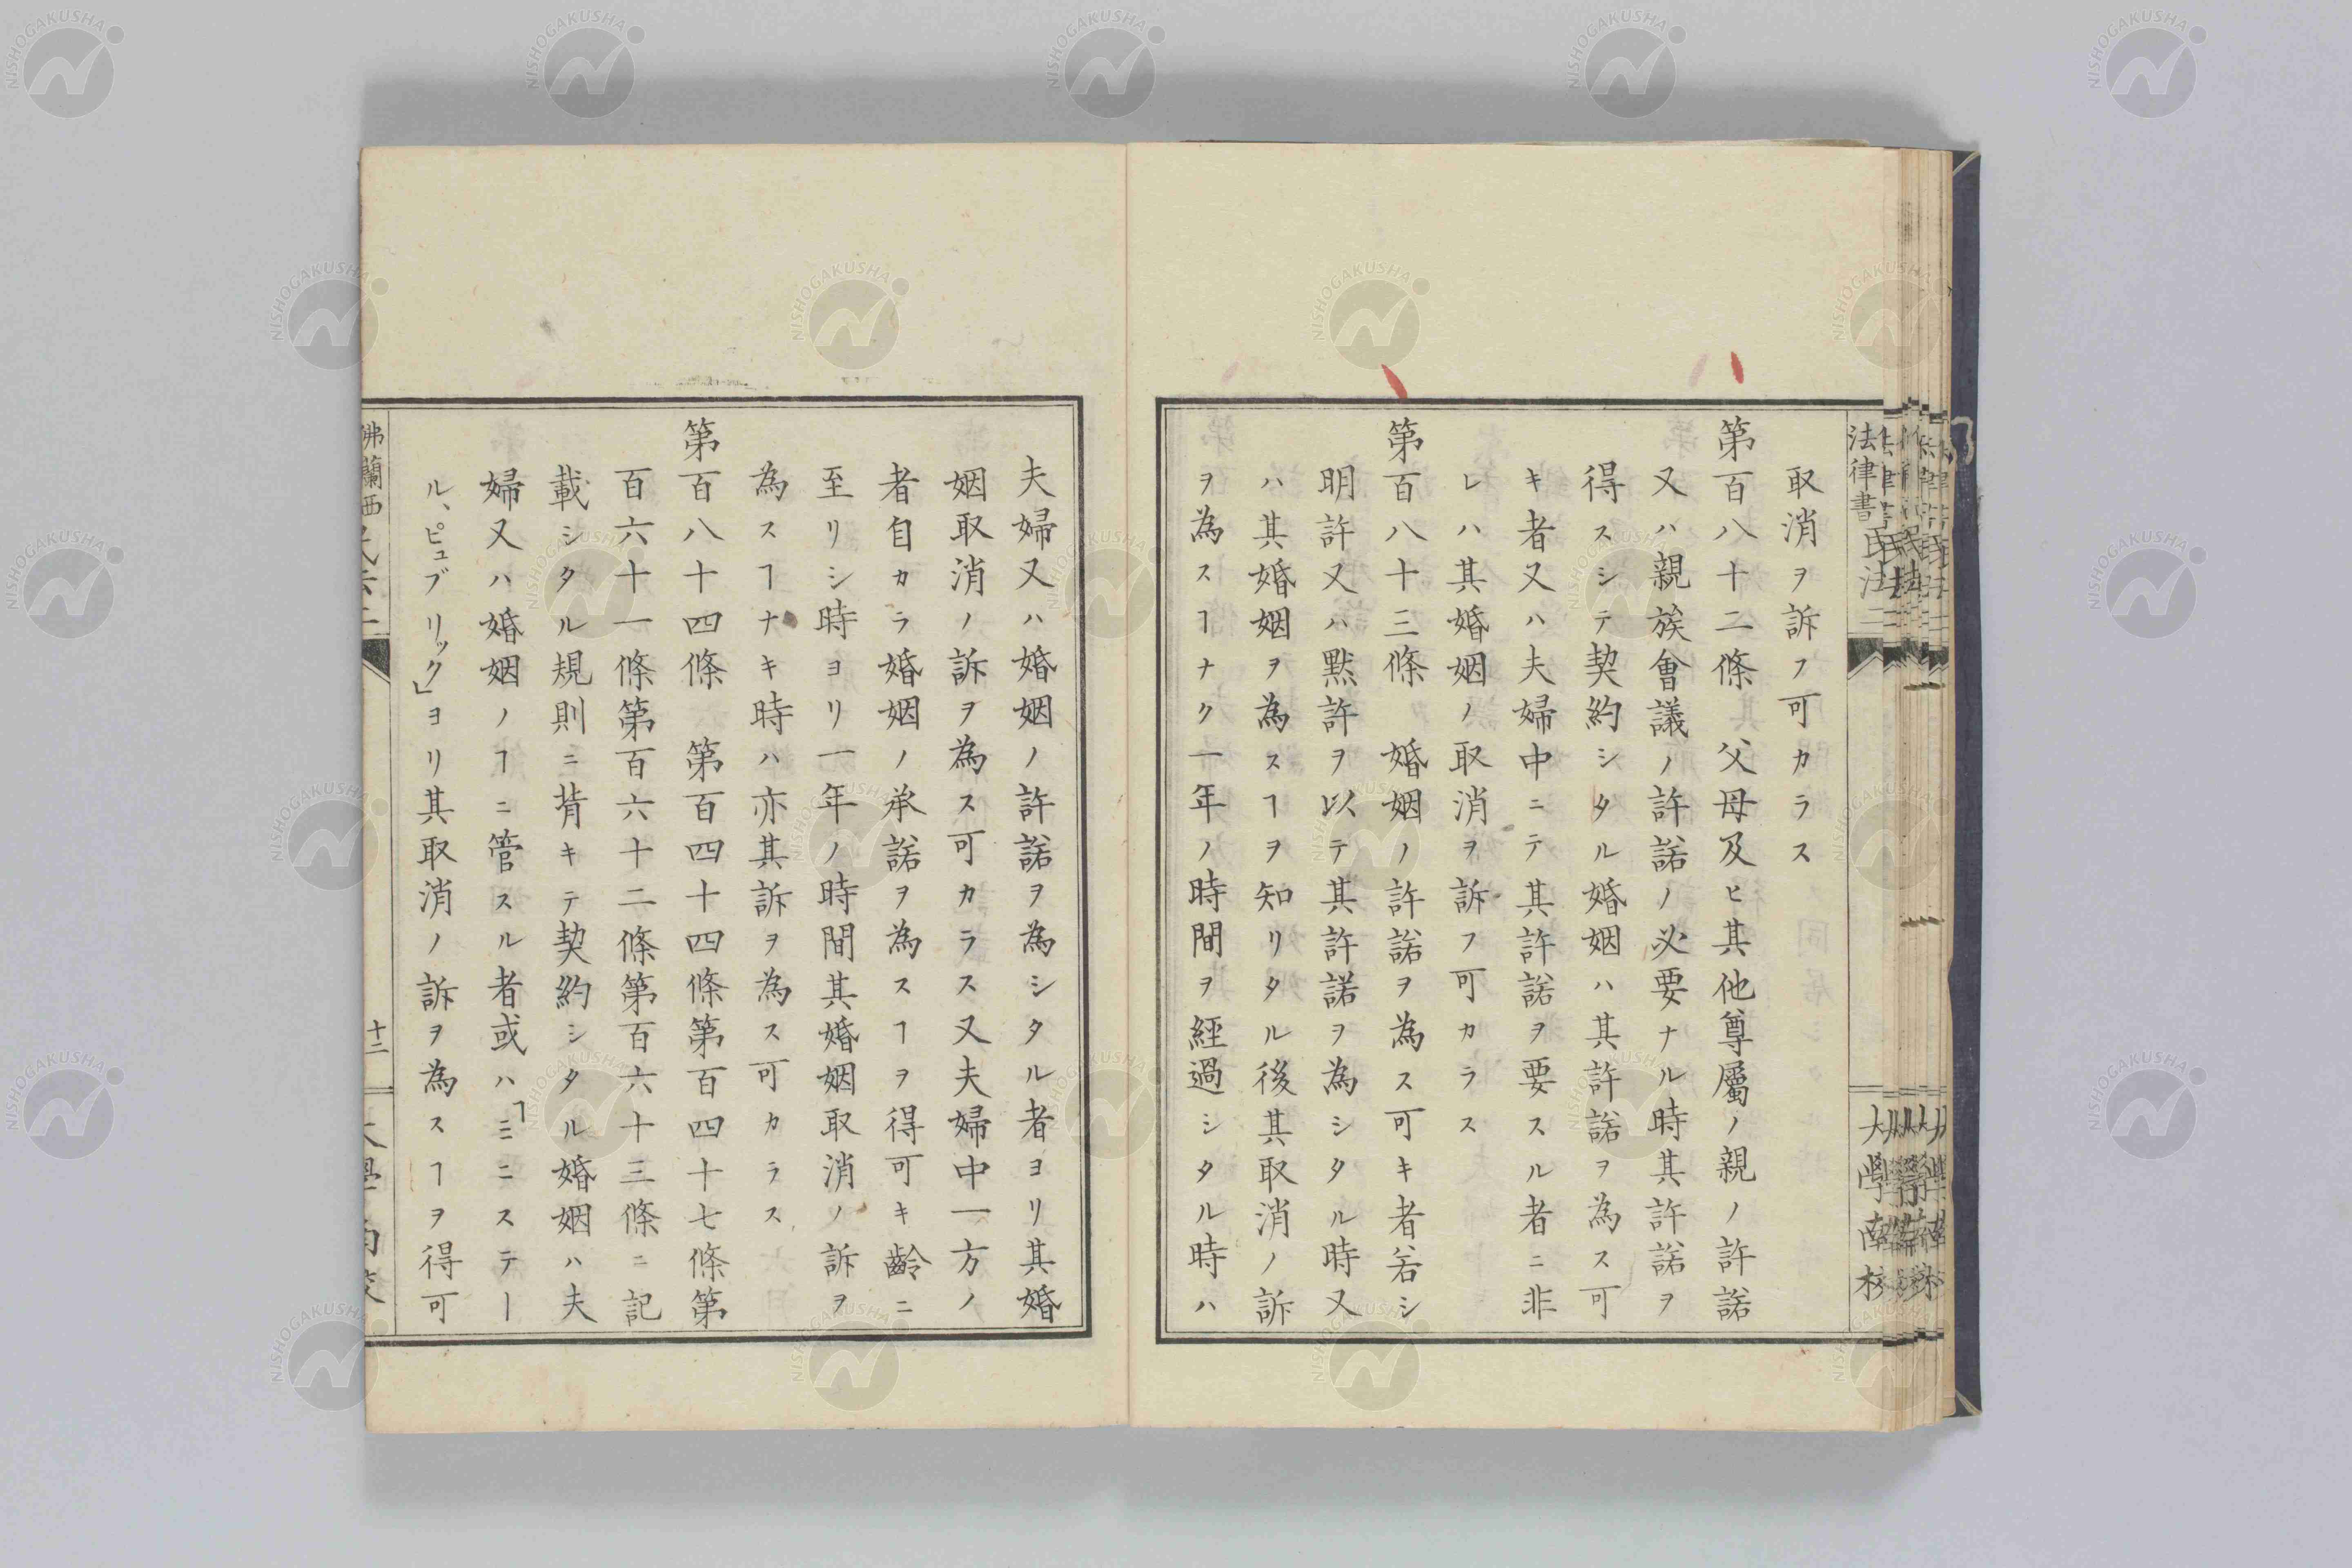 取消ヲ訴フ可カラス
第百八十二條 父母及ヒ其他尊屬ノ親ノ許諾
又ハ親族會議ノ許諾ノ必要ナル時其許諾ヲ
得スシテ契約シタル婚姻ハ其許諾ヲ為ス可
キ者又ハ夫婦中ニテ其許諾ヲ要スル者ニ非
レハ其婚姻ノ取消ヲ訴フ可カラス
第百八十三條 婚姻ノ許諾ヲ為ス可キ者若シ
明許又ハ默許ヲ以テ其許諾ヲ為シタル時又
ハ其婚姻ヲ為スヿヲ知リタル後其取消ノ訴
ヲ為スヿナク一年ノ時間ヲ經過シタル時ハ
夫婦又ハ婚姻ノ許諾ヲ為シタル者ヨリ其婚
姻取消ノ訴ヲ為ス可カラス又夫婦中一方ノ
者自カラ婚姻ノ承諾ヲ為スヿヲ得可キ齡ニ
至リシ時ヨリ一年ノ時間其婚姻取消ノ訴ヲ
為スヿナキ時ハ亦其訴ヲ為ス可カラス
第百八十四條 第百四十四條第百四十七條第
百六十一條第百六十二條第百六十三條ニ記
載シタル規則ニ背キテ契約シタル婚姻ハ夫
婦又ハ婚姻ノヿニ管スル者或ハ「ミニステー
ル、ピュブリック」ヨリ其取消ノ訴ヲ為スヿヲ得可
法律書
民法二
大學南校
佛蘭西
十二
NISHOGAKUSHA